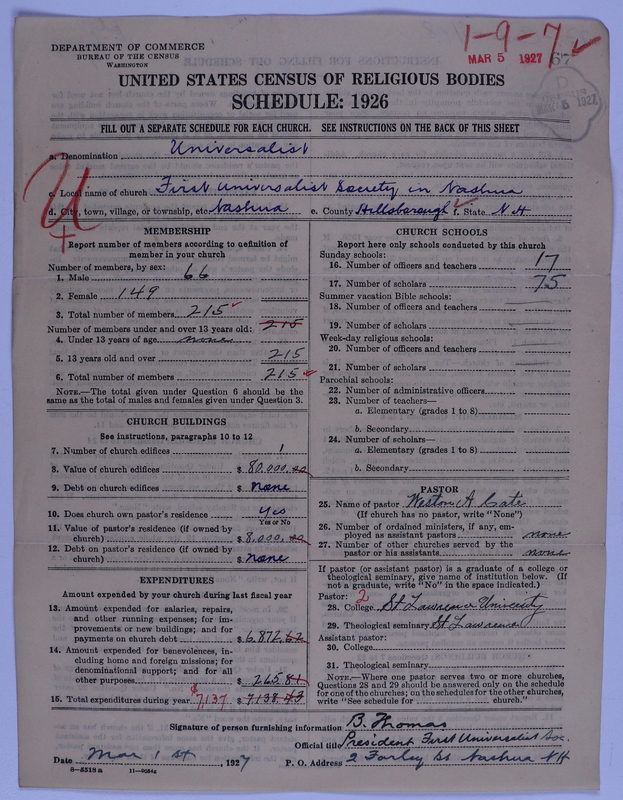 1-9-7 ✓
MAR 5 1927
DEPARTMENT OF COMMERCE
BUREAU OF THE CENSUS
WASHINGTON
UNITED STATES CENSUS OF RELIGIOUS BODIES
SCHEDULE: 1926
FILL OUT A SEPARATE SCHEDULE FOR EACH CHURCH. SEE INSTRUCTIONS ON THE BACK OF THIS SHEET
a. Denomination Universalist
c. Local name of church First Universalist Society in Nashua
d. City, town, village, or township, etc. Nashua e. County Hillsborough f. State N H
U
MEMBERSHIP
Report number of members according to definition of
member in your church
Number of members, by sex:
1. Male 66
2. Female 149
3. Total number of members 215 ✓
Number of members under and over 13 years old: 215
4. Under 13 years of age none
5. 13 years old and over 215
6. Total number of members 215 ✓
NOTE.—The total given under Question 6 should be
same as the total of males and females given under Question 3.
CHURCH BUILDINGS
See instructions, paragraphs 10 to 12
7. Number of church edifices 1
8. Value of church edifices $ 80,000.00
9. Debt on church edifices $ none
10. Does church own pastor's residence? Yes
Yes or No
11. Value of pastor's residence (if owned by
church) $ 8,000.00
12. Debt on pastor's residence (if owned by
church) $ none
EXPENDITURES
Amount expended by your church during last fiscal year
13. Amount expended for salaries, repairs,
and other running expenses; for im-
provements or new buildings; and for
payments on church debt $ 6,872.62
14. Amount expended for benevolences, in-
cluding home and foreign missions; for
denominational support; and for all
other purposes $ 265.81
15. Total expenditures during year $7,137 $ 7138.43
CHURCH SCHOOLS
Report here only schools conducted by this church
Sunday schools:
16. Number of officers and teachers 17
17. Number of scholars 75
Summer vacation Bible schools:
18. Number of officers and teachers
19. Number of scholars
Week-day religious schools:
20. Number of officers and teachers
21. Number of scholars
Parochial schools:
22. Number of administrative officers
23. Number of teachers—
a. Elementary (grades 1 to 8)
b. Secondary
24. Number of scholars—
a. Elementary (grades 1 to 8)
b. Secondary
PASTOR
25. Name of pastor Weston A Cate
(If church has no pastor, write "None")
26. Number of ordained ministers, if any, em-
ployed as assistant pastors none
27. Number of other churches served by the
pastor or his assistants none
If pastor (or assistant pastor) is a graduate of a college or
theological seminary, give name of institution below. (If
not a graduate, write "No" in the space indicated.)
Pastor: 2
28. College St Lawrence University
29. Theological seminary St Lawrence
Assistant pastor:
30. College
31. Theological seminary
NOTE.—Where one pastor serves two or more churches,
Questions 28 and 29 should be answered only on the schedule
for one of the churches; on the schedules for the other churches,
write "See schedule for ............ church."
Signature of person furnishing information B. Thomas
Official title President First Universalist Soc.
Date Mar 1st, 1927 P. O. Address 2 Farley St Nashua NH
8-5518 a 11-9064